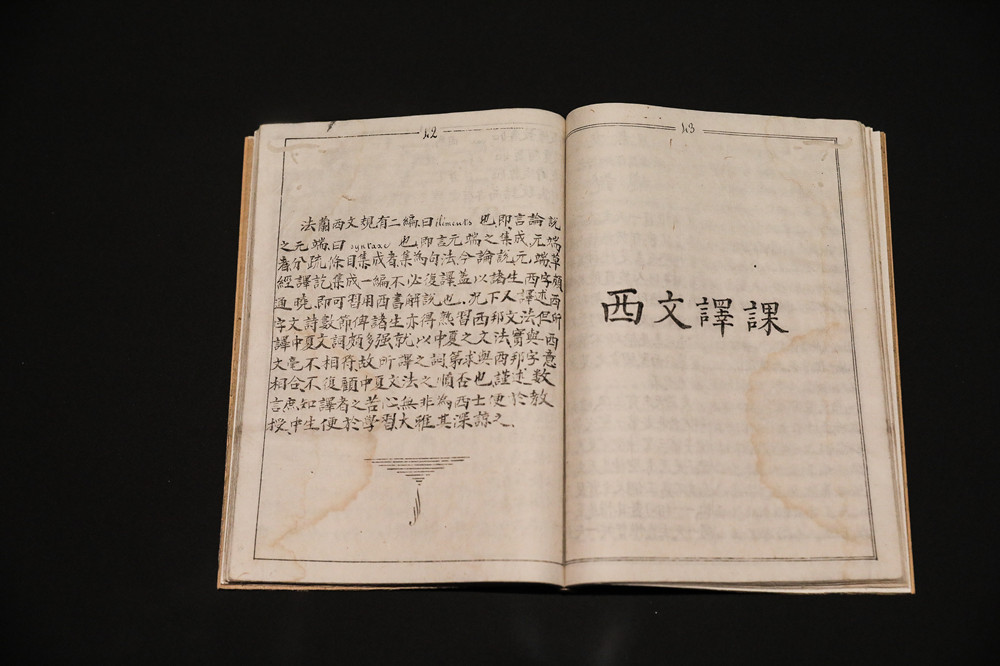 42
法蘭西文規有二編曰éléments也即言論説
之元端曰syntaxe也即言元端之集成元端
者分疏條目集成者集為句法今論説元端草
經譯訖集成一編不必復譯蓋以諸生西字頗
通曉即可習用西書解説也况下人譯述西
字文詩數節俾諸生亦得熟習西邦文法但所
譯中夏文詞頗多强就以中夏之文法實與西
文毫不相符故所譯之詞第求與西邦字意
相合不復顧中夏文法之順否也謹述數
言庶知譯者之苦心無非為西士便於教
授中生便於學習大雅其深諒之
43
西文譯課